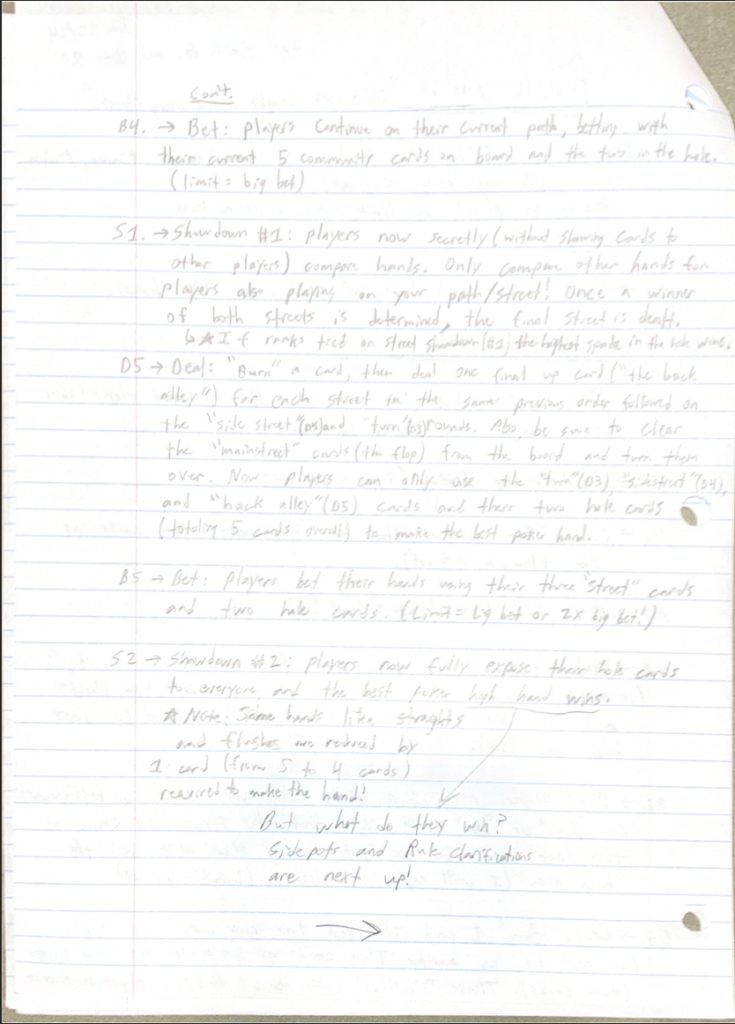 Cont.
B4. → Bet: players continue on their current path, betting with
their current 5 community cards on board and the two in the hole.
(limit = big bet)
S1. → Showdown #1: players now secretly (without showing cards to
other players) compare hands. Only compare other hands for
players also playing on your path/street! Once a winner
of both streets is determined, the final street is dealt.
↳ ☆ If ranks tied on street showdown (#1) the highest spade in the hole wins.
D5 → Deal: "Burn" a card, then deal one final up card ("the back
alley") for each street in the same previous order followed on
the "side street"(D4) and "turn"(D3) rounds. Also, be sure to clear
the "mainstreet" cards (the flop) from the board and turn them
over. Now players can only use the "turn"(D3), "sidestreet"(D4),
and "back alley"(D5) cards and their two hole cards
(totaling 5 cards overall) to make the best poker hand.
B5 → Bet: Players bet their hands using their three "street" cards
and two hole cards. (Limit = big bet or 2x big bet!)
S2 → Showdown #2: players now fully expose their hole cards
to everyone, and the best poker high hand wins.
☆ Note: Some hands like straights
and flushes are reduced by
1 card (from 5 to 4 cards)
required to make the hand!
But what do they win?
Sidepots and Rule Clarifications
are next up!
→